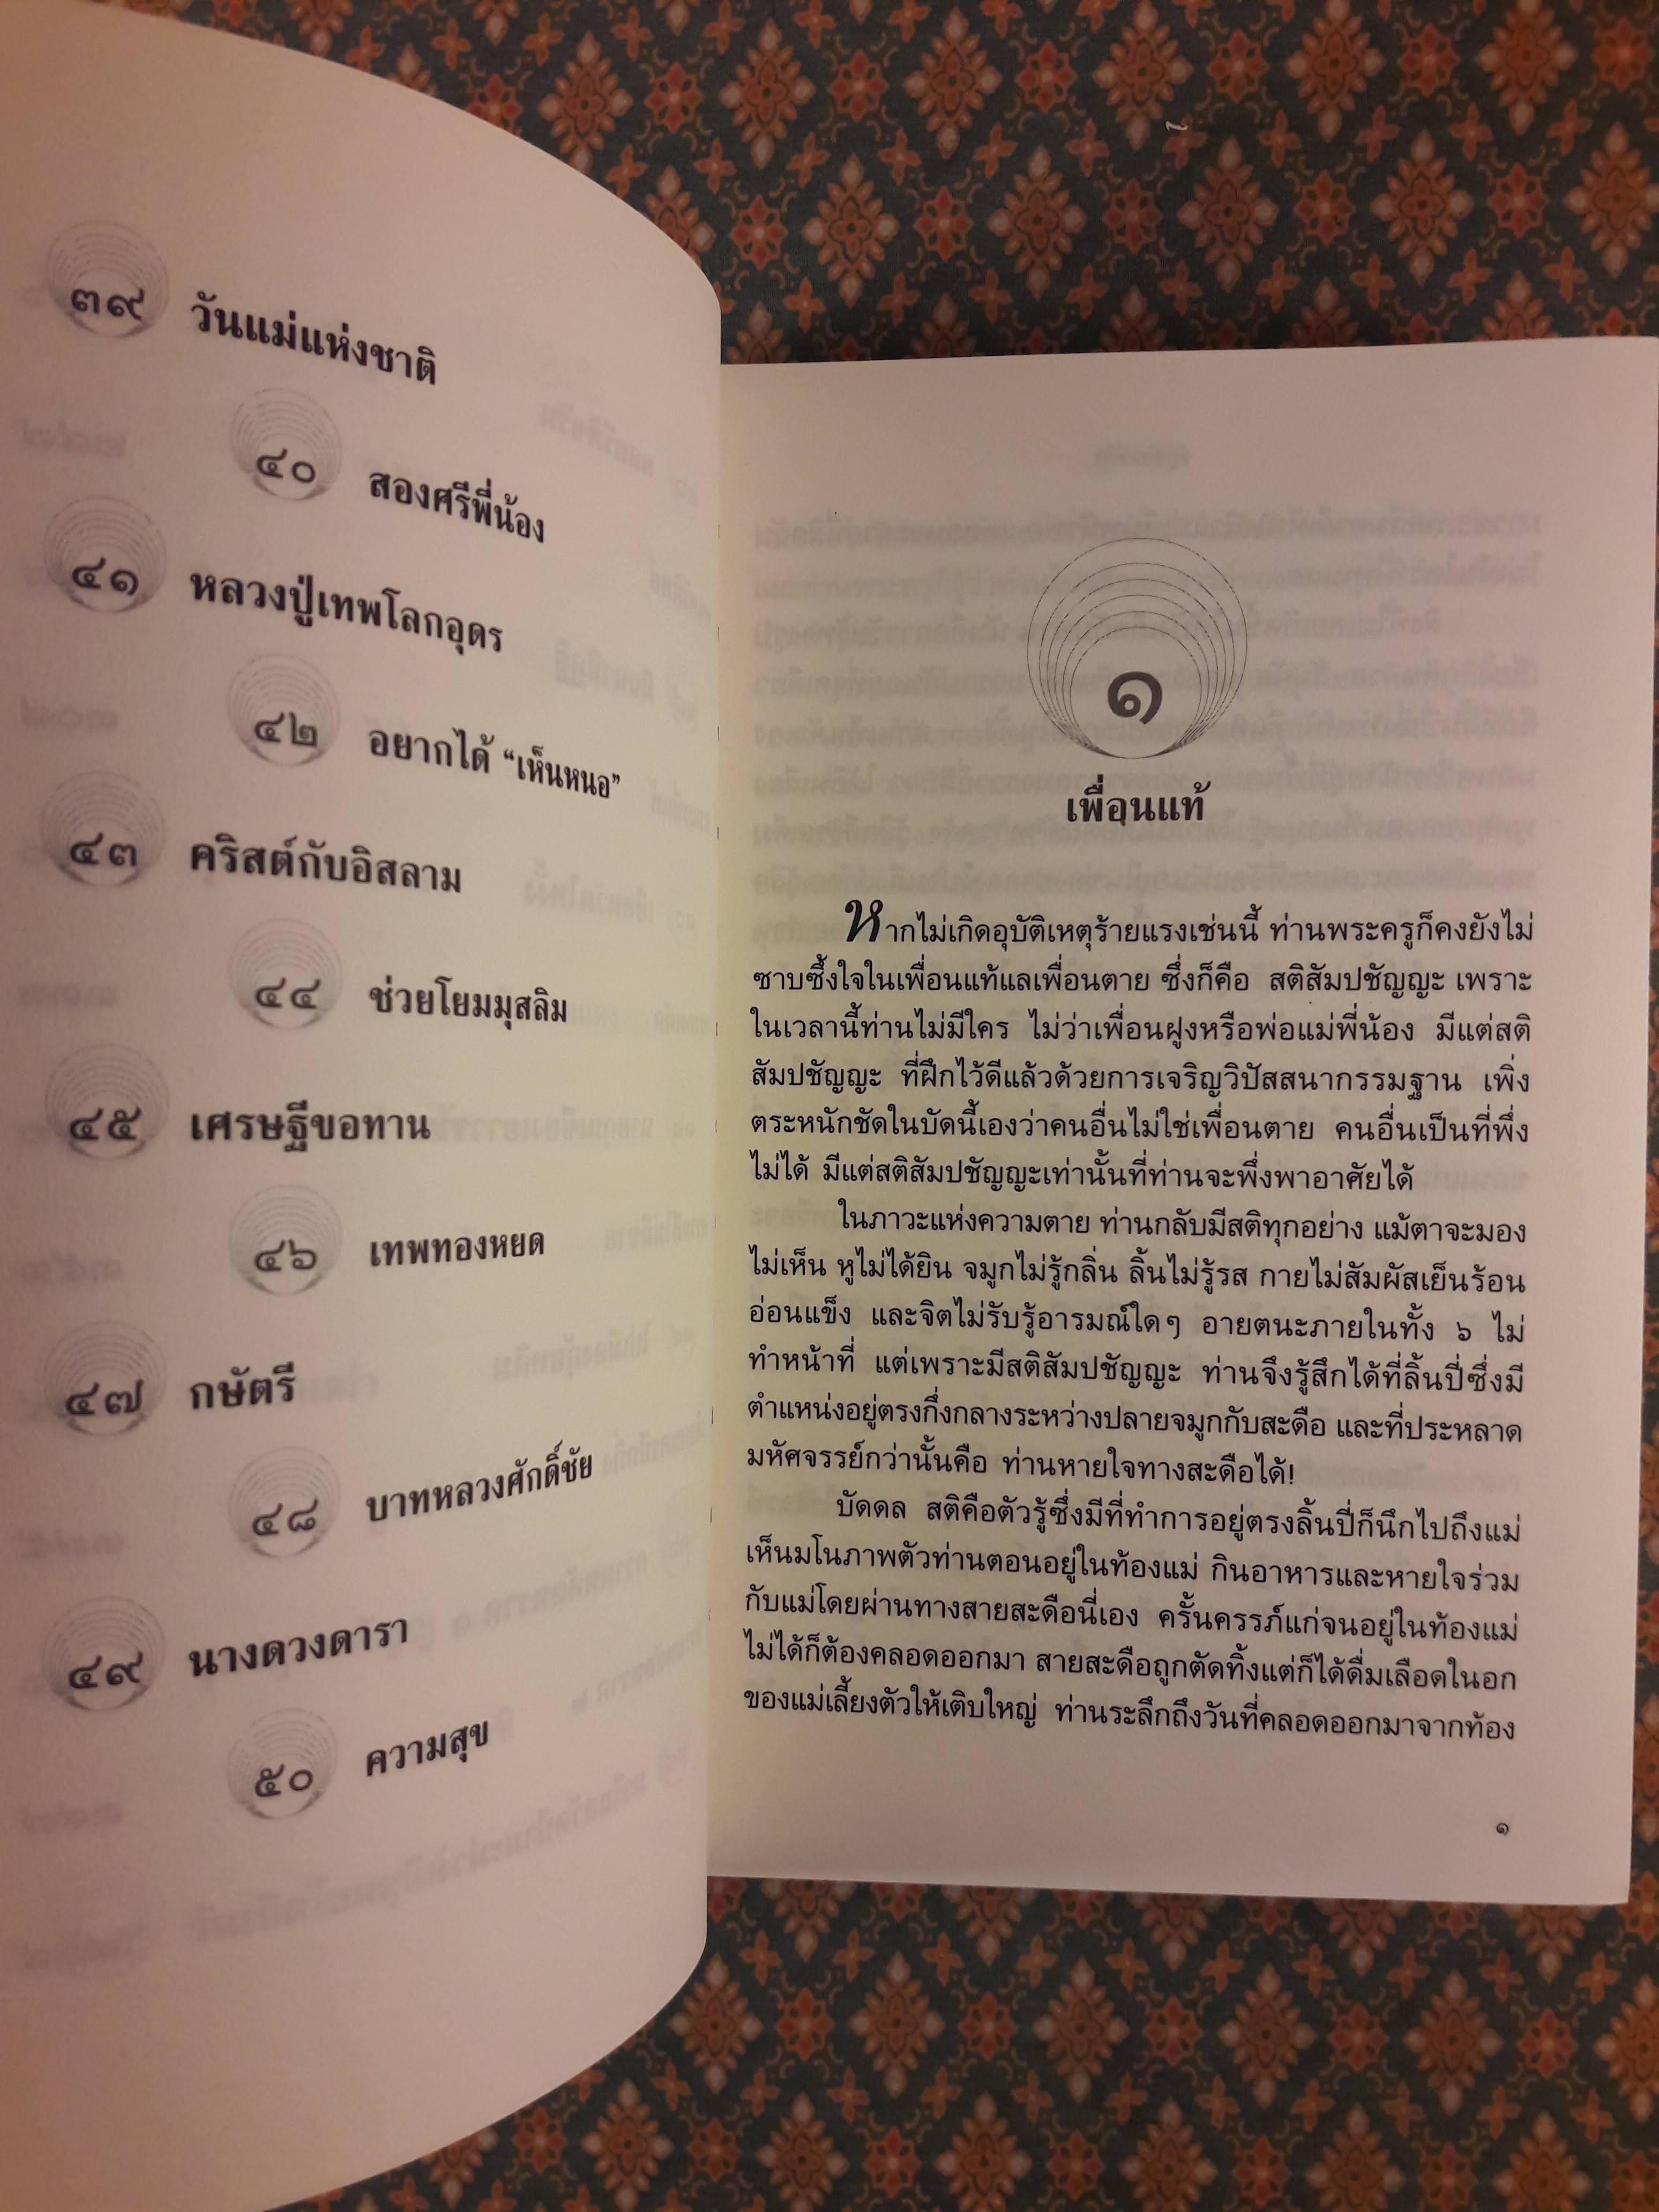 ๓๙ วันแม่แห่งชาติ
๔๐ สองศรีพี่น้อง
๔๑ หลวงปู่เทพโลกอุดร
๔๒ อยากได้ “เห็นหนอ”
๔๓ คริสต์กับอิสลาม
๔๔ ช่วยโยมมุสลิม
๔๕ เศรษฐีขอทาน
๔๖ เทพทองหยด
๔๗ กษัตรี
๔๘ บาทหลวงศักดิ์ชัย
๔๙ นางดวงดารา
๕๐ ความสุข
๑
เพื่อนแท้
หากไม่เกิดอุบัติเหตุร้ายแรงเช่นนี้ ท่านพระครูก็คงยังไม่
ซาบซึ้งใจในเพื่อนแท้แลเพื่อนตาย ซึ่งก็คือ สติสัมปชัญญะ เพราะ
ในเวลานี้ท่านไม่มีใคร ไม่ว่าเพื่อนฝูงหรือพ่อแม่พี่น้อง มีแต่สติ
สัมปชัญญะ ที่ฝึกไว้ดีแล้วด้วยการเจริญวิปัสสนากรรมฐาน เพิ่ง
ตระหนักชัดในบัดนี้เองว่าคนอื่นไม่ใช่เพื่อนตาย คนอื่นเป็นที่พึ่ง
ไม่ได้ มีแต่สติสัมปชัญญะเท่านั้นที่ท่านจะพึ่งพาอาศัยได้
ในภาวะแห่งความตาย ท่านกลับมีสติทุกอย่าง แม้ตาจะมอง
ไม่เห็น หูไม่ได้ยิน จมูกไม่รู้กลิ่น ลิ้นไม่รู้รส กายไม่สัมผัสเย็นร้อน
อ่อนแข็ง และจิตไม่รับรู้อารมณ์ใดๆ อายตนะภายในทั้ง ๖ ไม่
ทำหน้าที่ แต่เพราะมีสติสัมปชัญญะ ท่านจึงรู้สึกได้ที่ลิ้นปี่ซึ่งมี
ตำแหน่งอยู่ตรงกึ่งกลางระหว่างปลายจมูกกับสะดือ และที่ประหลาด
มหัศจรรย์กว่านั้นคือ ท่านหายใจทางสะดือได้!
บัดดล สติคือตัวรู้ซึ่งมีที่ทำการอยู่ตรงลิ้นปี่ก็นึกไปถึงแม่
เห็นมโนภาพตัวท่านตอนอยู่ในท้องแม่ กินอาหารและหายใจร่วม
กับแม่โดยผ่านทางสายสะดือนี่เอง ครั้นครรภ์แก่จนอยู่ในท้องแม่
ไม่ได้ก็ต้องคลอดออกมา สายสะดือถูกตัดทิ้งแต่ก็ได้ดื่มเลือดในอก
ของแม่เลี้ยงตัวให้เติบใหญ่ ท่านระลึกถึงวันที่คลอดออกมาจากท้อง
๑